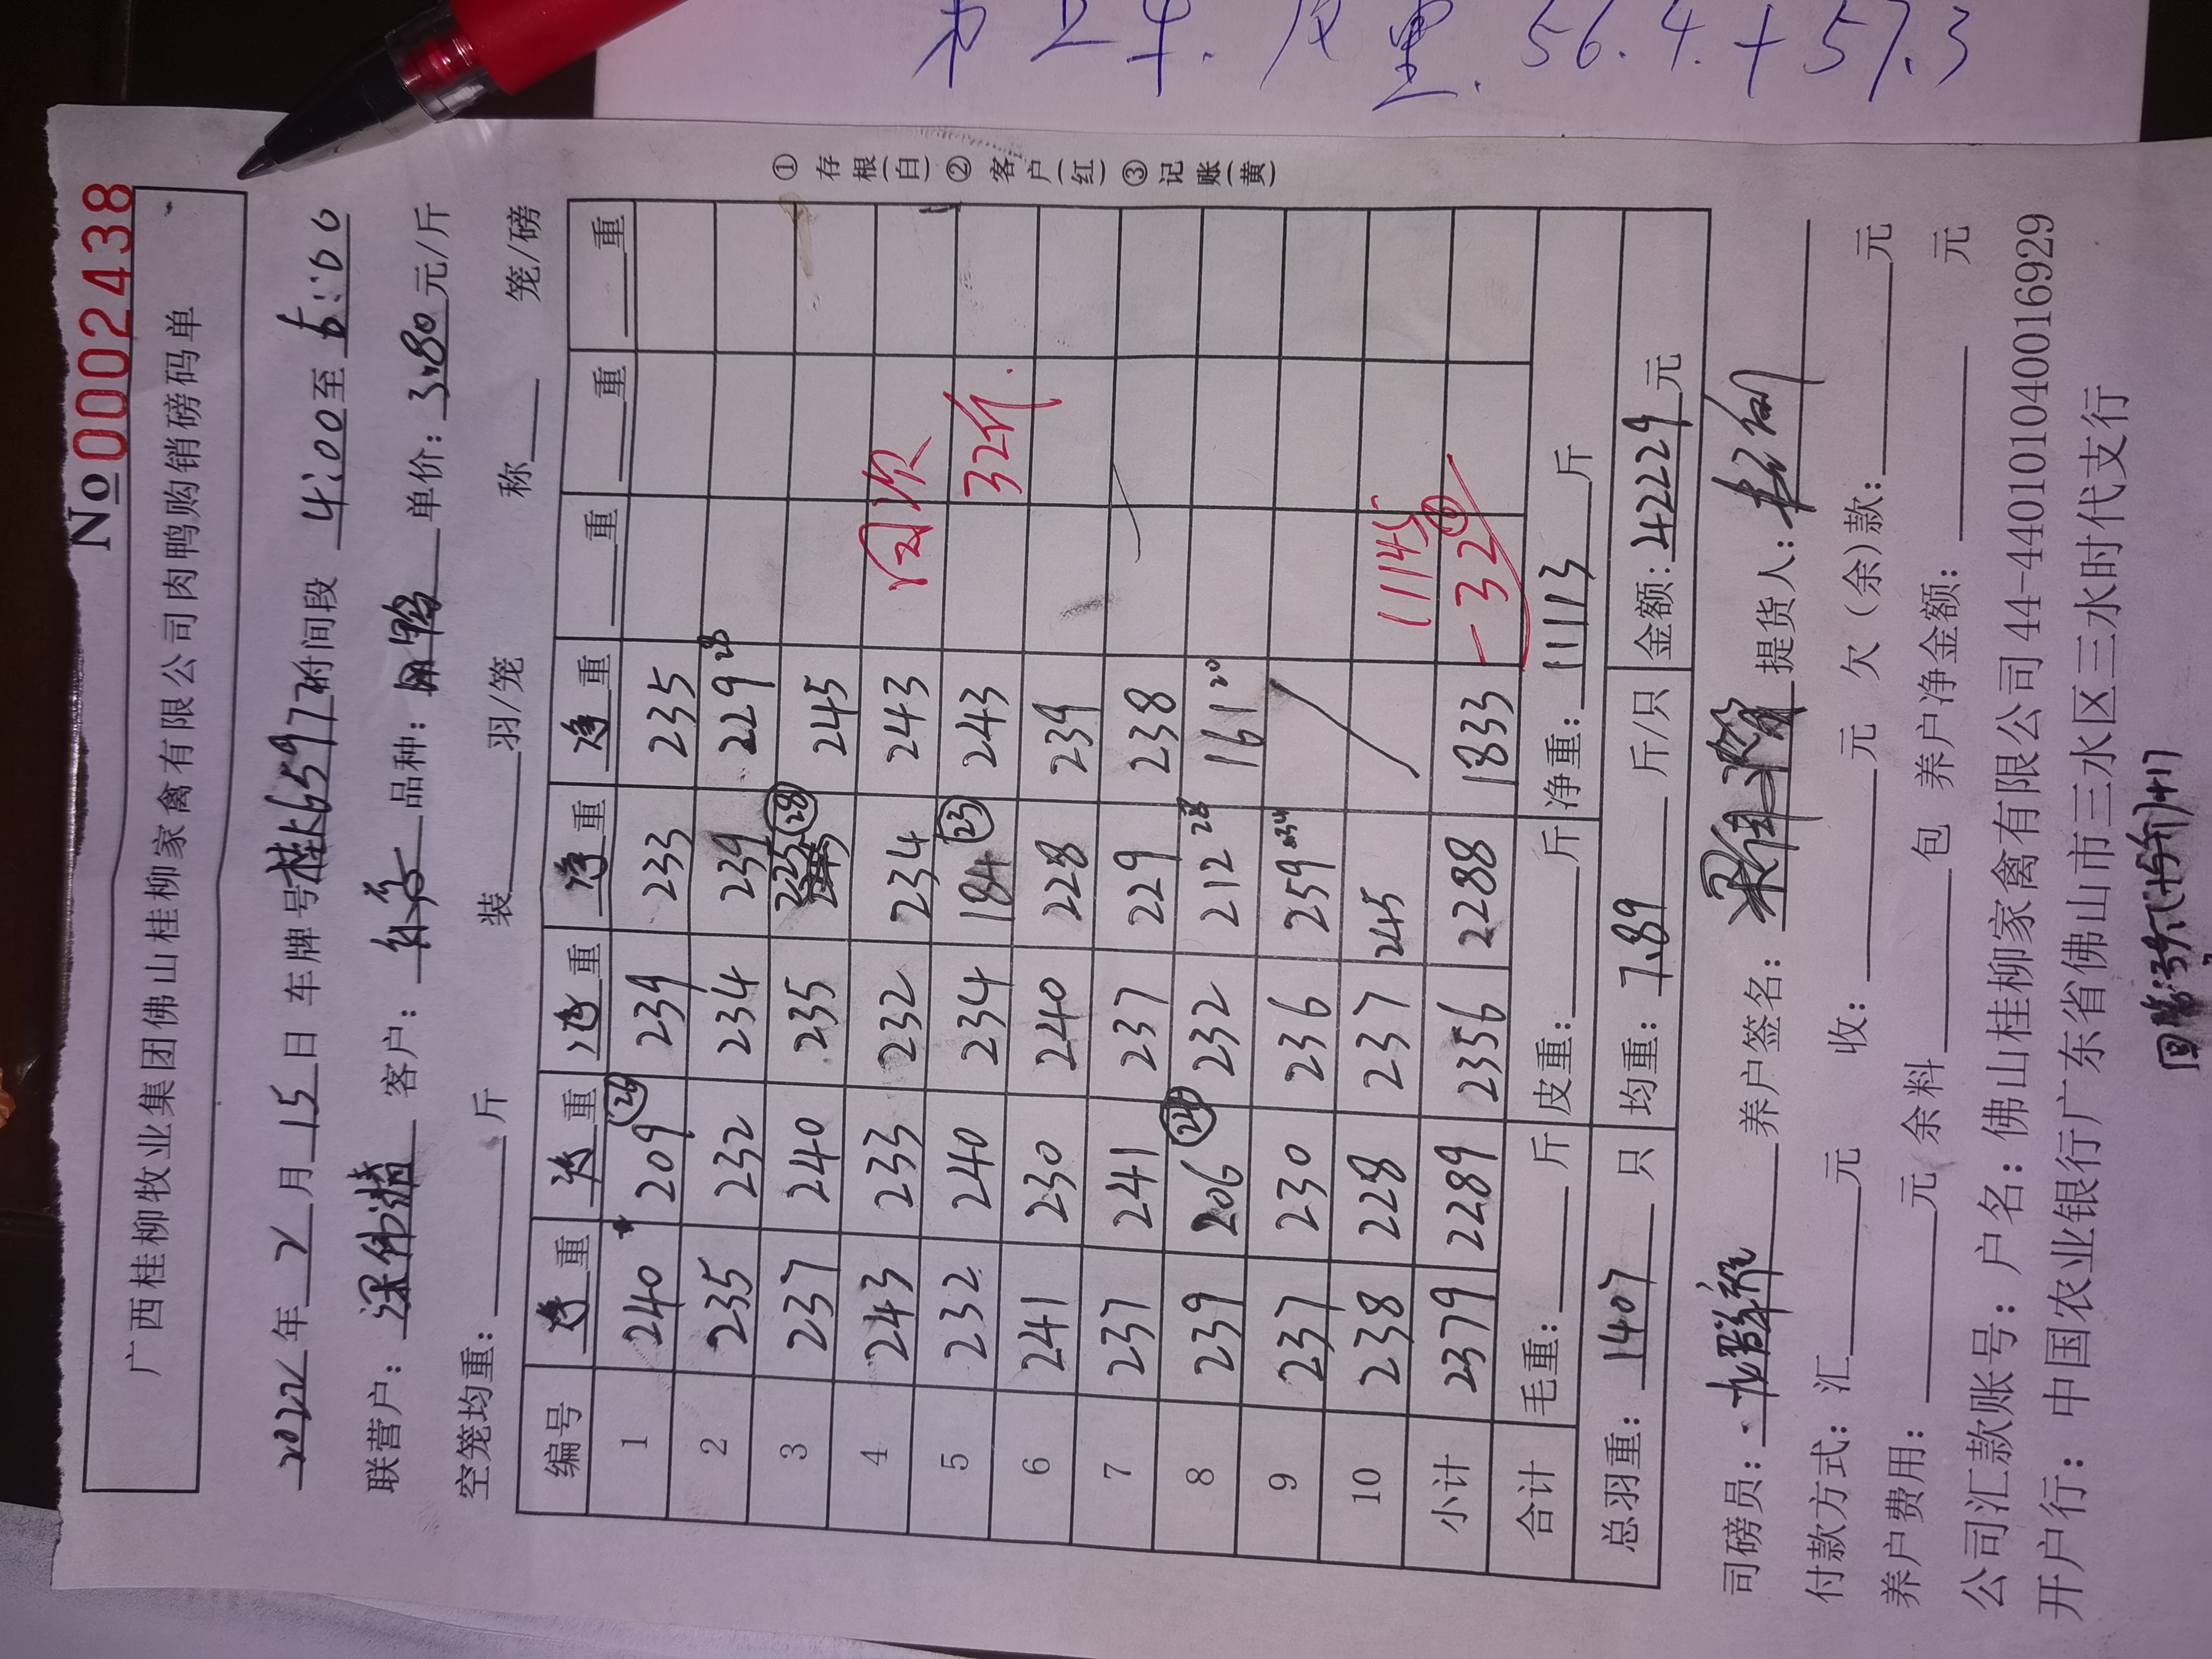 №0002438
广西桂柳牧业集团佛山桂柳家禽有限公司肉鸭购销磅码单
2022年2月15日 车牌号桂b6597 时间段 4:00至6:00
联营户: 客户: 品种: 鸭 单价: 3.80元/斤
空笼均重: 斤 装 羽/笼 称 笼/磅
编号 净重 净重 净重 净重 净重 重 重 重
1 240 209 (26) 239 233 235
2 235 232 234 239 229 28
3 237 240 235 225 (28) 245
4 243 233 232 234 243 回次
5 232 240 234 184 (23) 243 32斤.
6 241 230 240 228 239
7 237 241 237 229 238
8 239 206 (24) 232 212 28 161 20
9 237 230 236 259 34
10 238 228 237 245 11145
小计 2379 2289 2356 2288 1833 -32
合计 毛重: 斤 皮重: 斤 净重: 11113 斤
总羽重: 1407 只 均重: 7.89 斤/只 金额: 42229元
司磅员: 养户签名: 提货人:
付款方式: 汇 元 收: 元 欠(余)款: 元
养户费用: 元 余料 包 养户净金额: 元
公司汇款账号: 户名: 佛山桂柳家禽有限公司 44-440101040016929
开户行: 中国农业银行广东省佛山市三水区三水时代支行
①存根(白)②客户(红)③记账(黄)
皮重. 56.4.+57.3